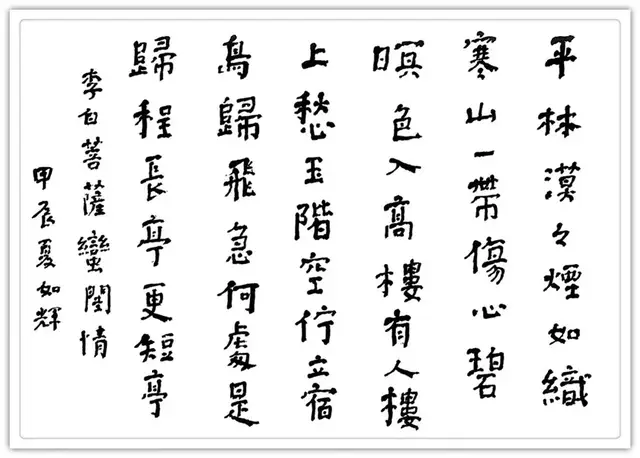 平林漠々煙如織
寒山一帶傷心碧
暝色入高樓有人樓
上愁玉階空佇立宿
鳥歸飛急何處是
歸程長亭更短亭
李白菩薩蠻閨情
甲辰夏如輝